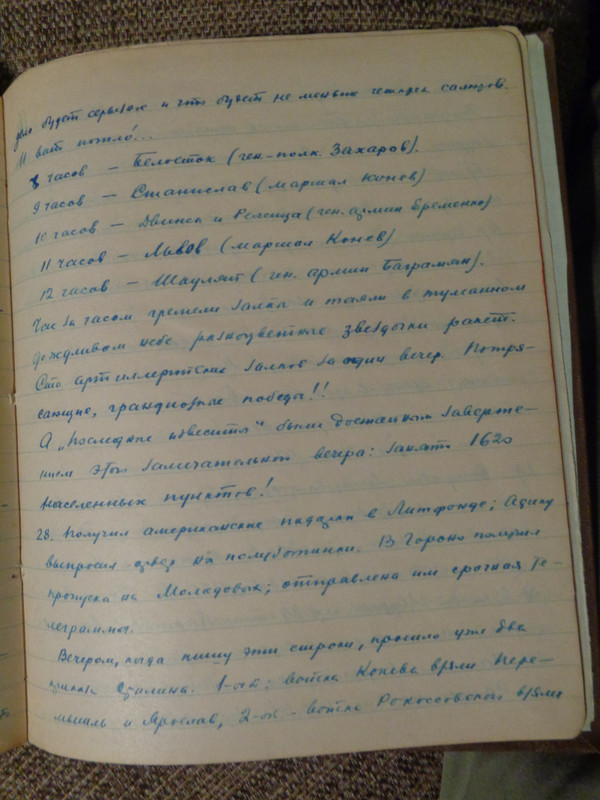 дело будет серьезное и что будет не меньше четырех салютов.
И вот пошло!...
8 часов — Белосток (ген-полк. Захаров).
9 часов — Станислав (маршал Конев)
10 часов — Двинск и Режица (ген. армии Еременко)
11 часов — Львов (маршал Конев)
12 часов — Шауляй (ген. армии Баграмян).
Час за часом гремели залпы и таяли в туманном
дождливом небе разноцветные звездочки ракет.
Сто артиллерийских залпов за один вечер. Потря-
сающие, грандиозные победы!!
А „Последние известия" были достойным заверше-
нием этого замечательного вечера: занято 1620
населенных пунктов!
28. Получил американские подарки в Литфонде; Адику
выпросил ордер на полуботинки. В Гороно получил
пропуска на Молодовых; отправлена им срочная те-
леграмма.
Вечером, когда пишу эти строки, прошло уже два
приказа Сталина. 1-ый: войска Конева взяли Пере-
мышль и Ярослав, 2-ой - войска Рокоссовского взяли